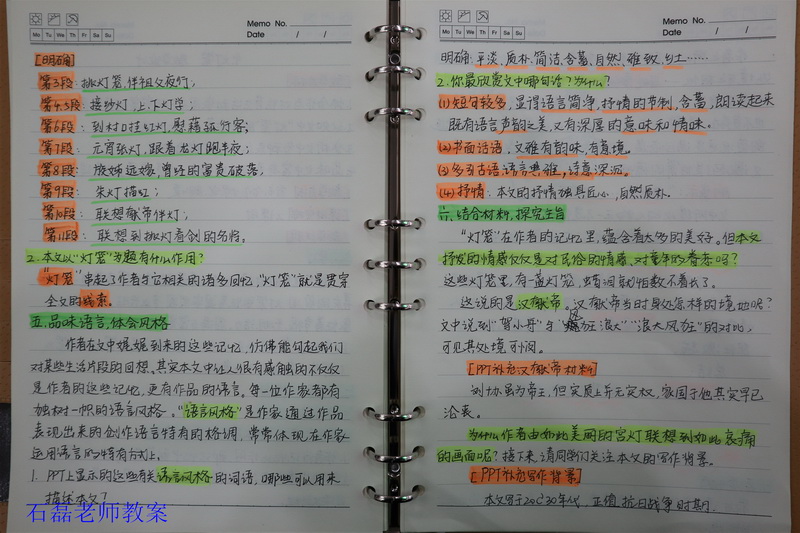 Memo No.
Mo Tu We Th Fr Sa Su
Date / /
[明确]
第3段：挑灯笼，伴祖父夜行；
第4.5段：接纱灯，上、下灯学；
第6段：到村口挂红灯，慰藉孤行客；
第7段：元宵张灯，跟着龙灯跑半夜；
第8段：族姊远嫁，曾经的富贵破落；
第9段：朱灯描红；
第10段：联想献帝伴灯；
第11段：联想到挑灯看剑的名将。
2.本文以“灯笼”为题有什么作用？
“灯笼”串起了作者与它相关的诸多回忆，“灯笼”就是贯穿
全文的线索。
五、品味语言，体会风格
作者在文中娓娓到来的这些记忆，仿佛能勾起我们
对某些生活片段的回想。其实本文中让人很有感触的不仅仅
是作者的这些记忆，更有作品的语言。每一位作家都有
独树一帜的语言风格。“语言风格”是作家通过作品
表现出来的创作语言特有的格调，常常体现在作家
运用语言的特有方式上。
1. PPT上显示的这些有关语言风格的词语，哪些可以用来
描述本文？
石磊老师教案
Memo No.
Mo Tu We Th Fr Sa Su
Date / /
明确：平淡、质朴、简洁、含蓄、自然、雅致、乡土……
2.你最欣赏文中哪句话？为什么？
(1)短句较多，显得语言简净，抒情的节制，含蓄，朗读起来
既有语言声韵之美，又有深厚的意味和情味。
(2)书面话语，文雅有韵味，有意境。
(3)多引古语，语言典雅，诗意深沉。
(4)抒情：本文的抒情独具匠心，自然质朴。
六、结合材料，探究主旨
“灯笼”在作者的记忆里，蕴含着太多的美好。但本文
抒发的情感仅仅是对民俗的情感，对童年的眷恋吗？
这些灯笼里，有一盏灯笼，
这说的是汉献帝。汉献帝当时身处怎样的境地呢？
文中说到“
可见其处境可悯。
[PPT补充汉献帝材料]
刘协虽为帝王，但实质上并无实权，家国于他其实早已
沦丧。
为什么作者由如此美丽的宫灯联想到如此哀痛
的画面呢？接下来，请同学们关注本文的写作背景。
[PPT补充写作背景]
本文写于20C30年代，正值抗日战争时期。